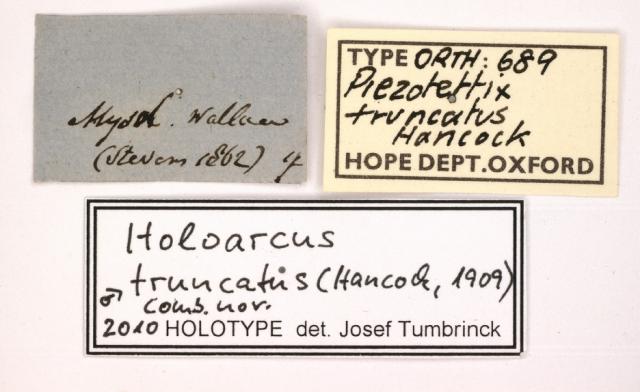 Mysol. Wallace
(Stevens 1862) 4
TYPE ORTH: 689
Piezotettix
truncatus
Hancock
HOPE DEPT.OXFORD
Holoarcus
truncatus (Hancock, 1909)
♂ comb. nov.
2010 HOLOTYPE det. Josef Tumbrinck